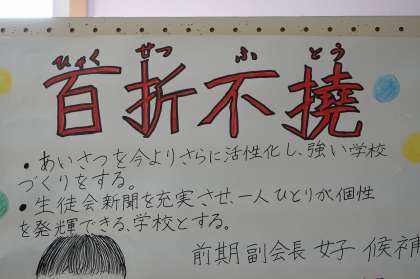 ひゃく せつ ふ とう
百折不撓
•あいさつを今よりさらに活性化し、強い学校
づくりをする。
•生徒会新聞を充実させ、一人ひとりが、個性
を発揮できる、学校とする。
前期副会長 女子 候補